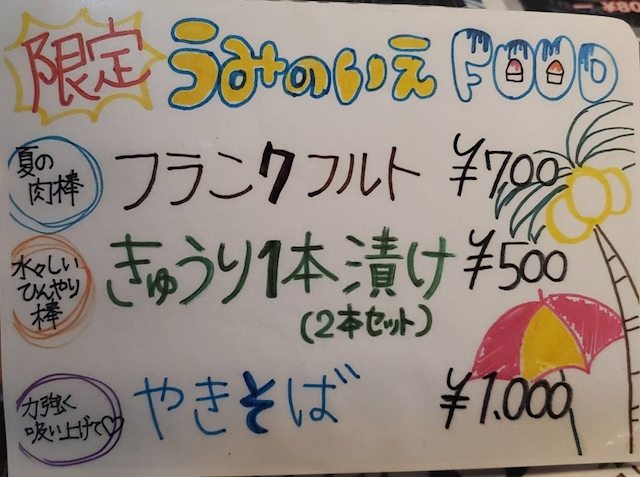 限定 うみのいえ FOOD
夏の
肉棒
フランクフルト ¥700
水々しい
ひんやり
棒
きゅうり1本漬け ¥500
(2本セット)
力強く
吸い上げて♡
やきそば ¥1.000